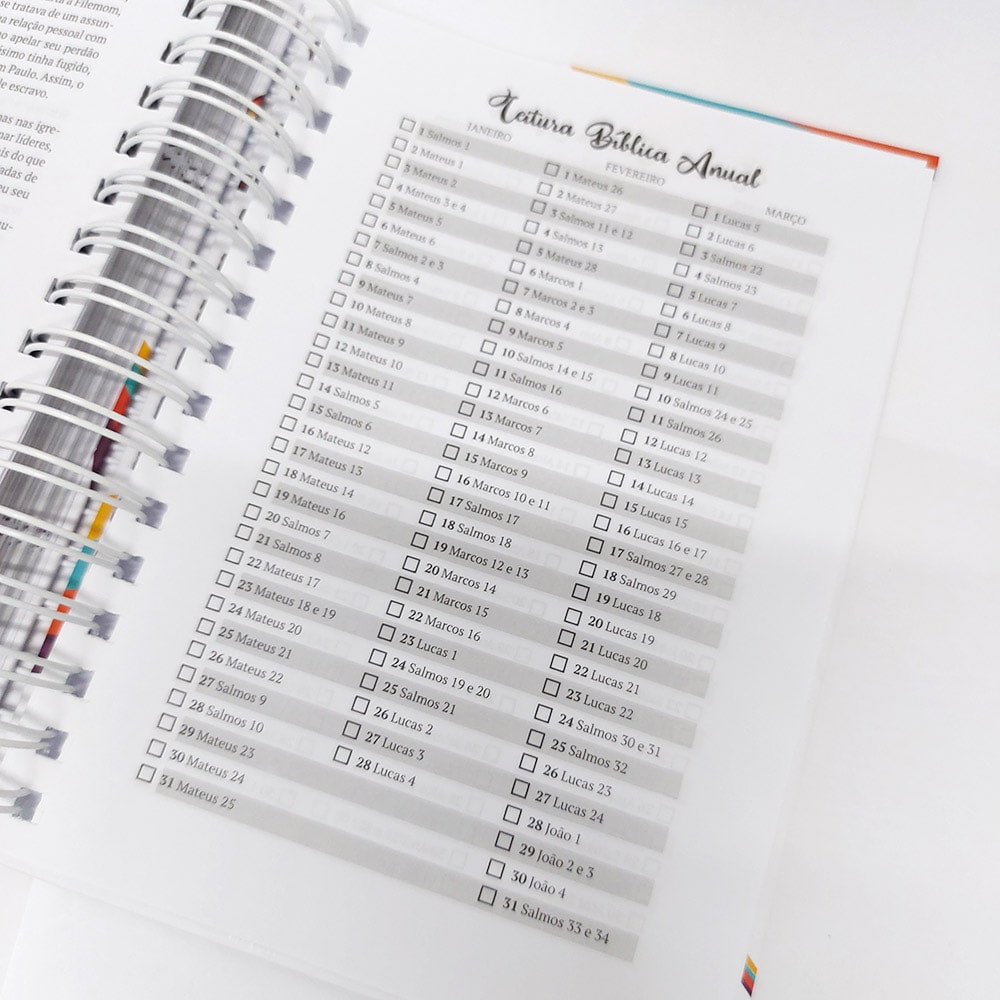 a Filemom,
se tratava de um assun-
a relação pessoal com
o apelar seu perdão
ésimo tinha fugido,
m Paulo. Assim, o
le escravo.
nas nas igre-
par líderes,
is do que
adas de
eu seu
Leitura Bíblica Anual
JANEIRO
1 Salmos 1
2 Mateus 1
3 Mateus 2
4 Mateus 3 e 4
5 Mateus 5
6 Mateus 6
7 Salmos 2 e 3
8 Salmos 4
9 Mateus 7
10 Mateus 8
11 Mateus 9
12 Mateus 10
13 Mateus 11
14 Salmos 5
15 Salmos 6
16 Mateus 12
17 Mateus 13
18 Mateus 14
19 Mateus 16
20 Salmos 7
21 Salmos 8
22 Mateus 17
23 Mateus 18 e 19
24 Mateus 20
25 Mateus 21
26 Mateus 22
27 Salmos 9
28 Salmos 10
29 Mateus 23
30 Mateus 24
31 Mateus 25
FEVEREIRO
1 Mateus 26
2 Mateus 27
3 Salmos 11 e 12
4 Salmos 13
5 Mateus 28
6 Marcos 1
7 Marcos 2 e 3
8 Marcos 4
9 Marcos 5
10 Salmos 14 e 15
11 Salmos 16
12 Marcos 6
13 Marcos 7
14 Marcos 8
15 Marcos 9
16 Marcos 10 e 11
17 Salmos 17
18 Salmos 18
19 Marcos 12 e 13
20 Marcos 14
21 Marcos 15
22 Marcos 16
23 Lucas 1
24 Salmos 19 e 20
25 Salmos 21
26 Lucas 2
27 Lucas 3
28 Lucas 4
MARÇO
1 Lucas 5
2 Lucas 6
3 Salmos 22
4 Salmos 23
5 Lucas 7
6 Lucas 8
7 Lucas 9
8 Lucas 10
9 Lucas 11
10 Salmos 24 e 25
11 Salmos 26
12 Lucas 12
13 Lucas 13
14 Lucas 14
15 Lucas 15
16 Lucas 16 e 17
17 Salmos 27 e 28
18 Salmos 29
19 Lucas 18
20 Lucas 19
21 Lucas 20
22 Lucas 21
23 Lucas 22
24 Salmos 30 e 31
25 Salmos 32
26 Lucas 23
27 Lucas 24
28 João 1
29 João 2 e 3
30 João 4
31 Salmos 33 e 34